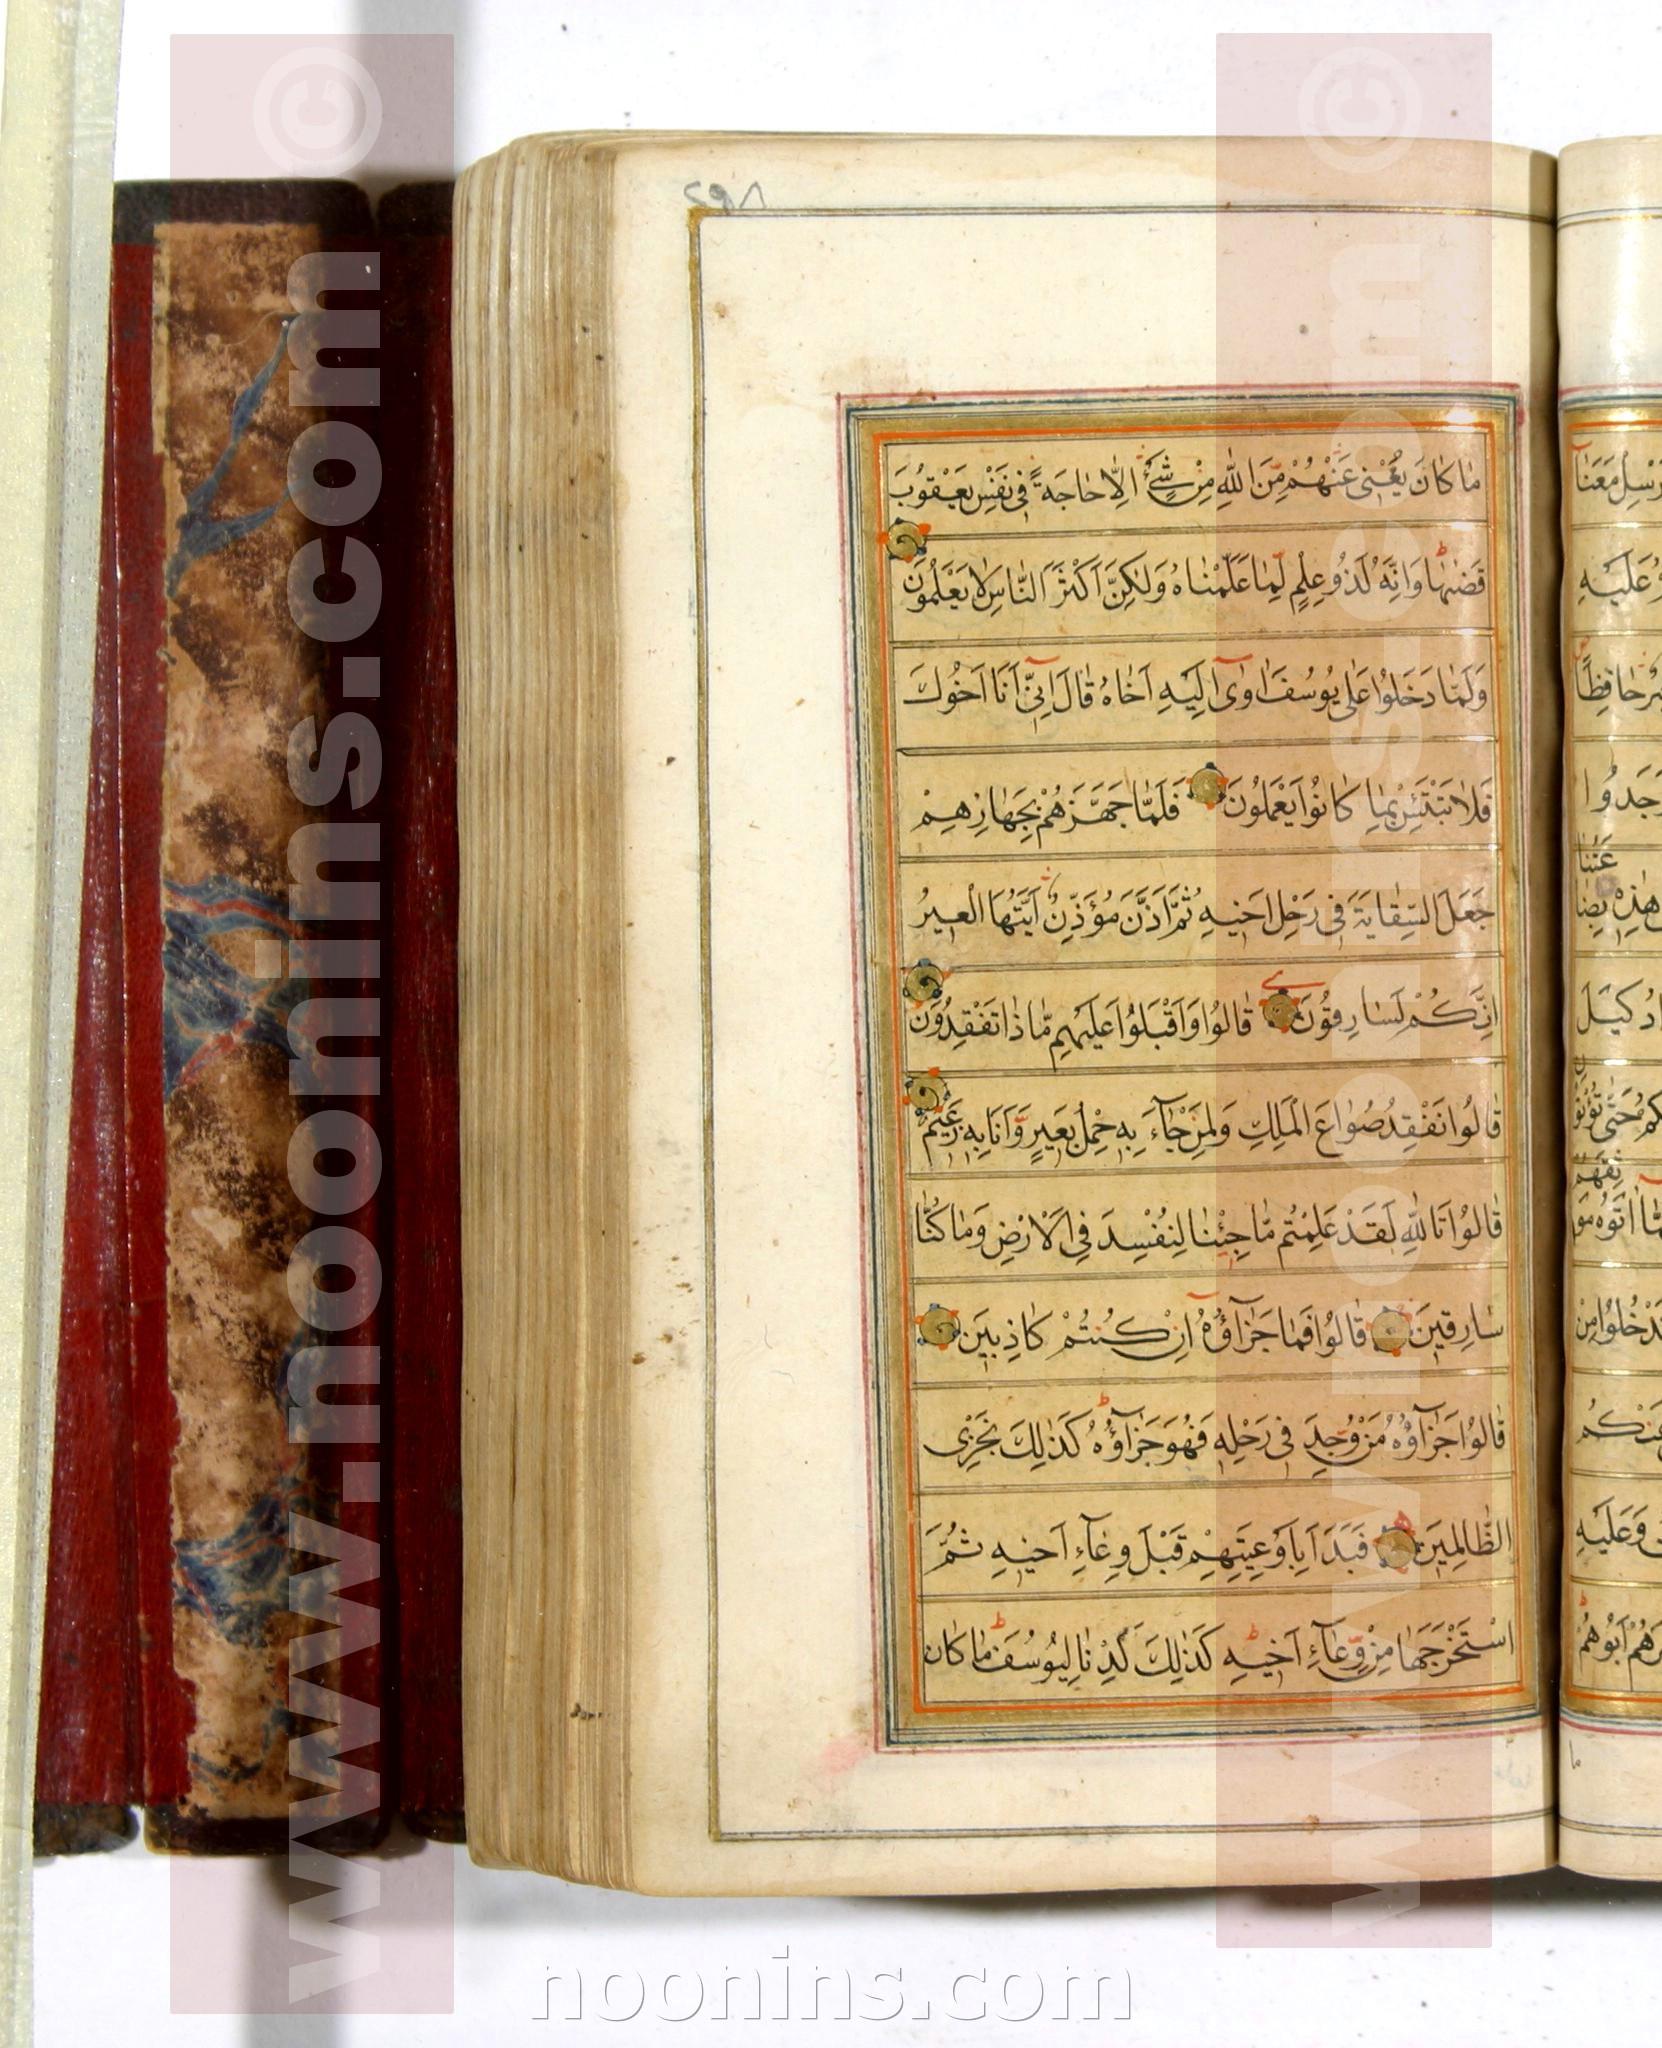 ٢٩٨
مَا كَانَ يُغْنِي عَنْهُمْ مِنَ اللهِ مِنْ شَيْءٍ اِلَّا حَاجَةً فِي نَفْسِ يَعْقُوبَ
قَضٰيهَا وَاِنَّهُ لَذُو عِلْمٍ لِمَا عَلَّمْنَاهُ وَلٰكِنَّ اَكْثَرَ النَّاسِ لَا يَعْلَمُونَ
وَلَمَّا دَخَلُوا عَلٰى يُوسُفَ اٰوٰى اِلَيْهِ اَخَاهُ قَالَ اِنِّي اَنَا اَخُوكَ
فَلَا تَبْتَئِسْ بِمَا كَانُوا يَعْمَلُونَ فَلَمَّا جَهَّزَهُمْ بِجَهَازِهِمْ
جَعَلَ السِّقَايَةَ فِي رَحْلِ اَخِيهِ ثُمَّ اَذَّنَ مُؤَذِّنٌ اَيَّتُهَا الْعِيرُ
اِنَّكُمْ لَسَارِقُونَ قَالُوا وَاَقْبَلُوا عَلَيْهِمْ مَّاذَا تَفْقِدُونَ
قَالُوا نَفْقِدُ صُوَاعَ الْمَلِكِ وَلِمَنْ جَآءَ بِهِ حِمْلُ بَعِيرٍ وَّاَنَا بِهِ زَعِيمٌ
قَالُوا تَاللهِ لَقَدْ عَلِمْتُمْ مَّا جِئْنَا لِنُفْسِدَ فِي الْاَرْضِ وَمَا كُنَّا
سَارِقِينَ قَالُوا فَمَا جَزَآؤُهُ اِنْ كُنْتُمْ كَاذِبِينَ
قَالُوا جَزَآؤُهُ مَنْ وُّجِدَ فِي رَحْلِهِ فَهُوَ جَزَآؤُهُ كَذٰلِكَ نَجْزِي
الظَّالِمِينَ فَبَدَاَ بِاَوْعِيَتِهِمْ قَبْلَ وِعَآءِ اَخِيهِ ثُمَّ
اسْتَخْرَجَهَا مِنْ وِّعَآءِ اَخِيهِ كَذٰلِكَ كِدْنَا لِيُوسُفَ مَا كَانَ
www.noonins.com ©
www.noonins.com ©
noonins.com